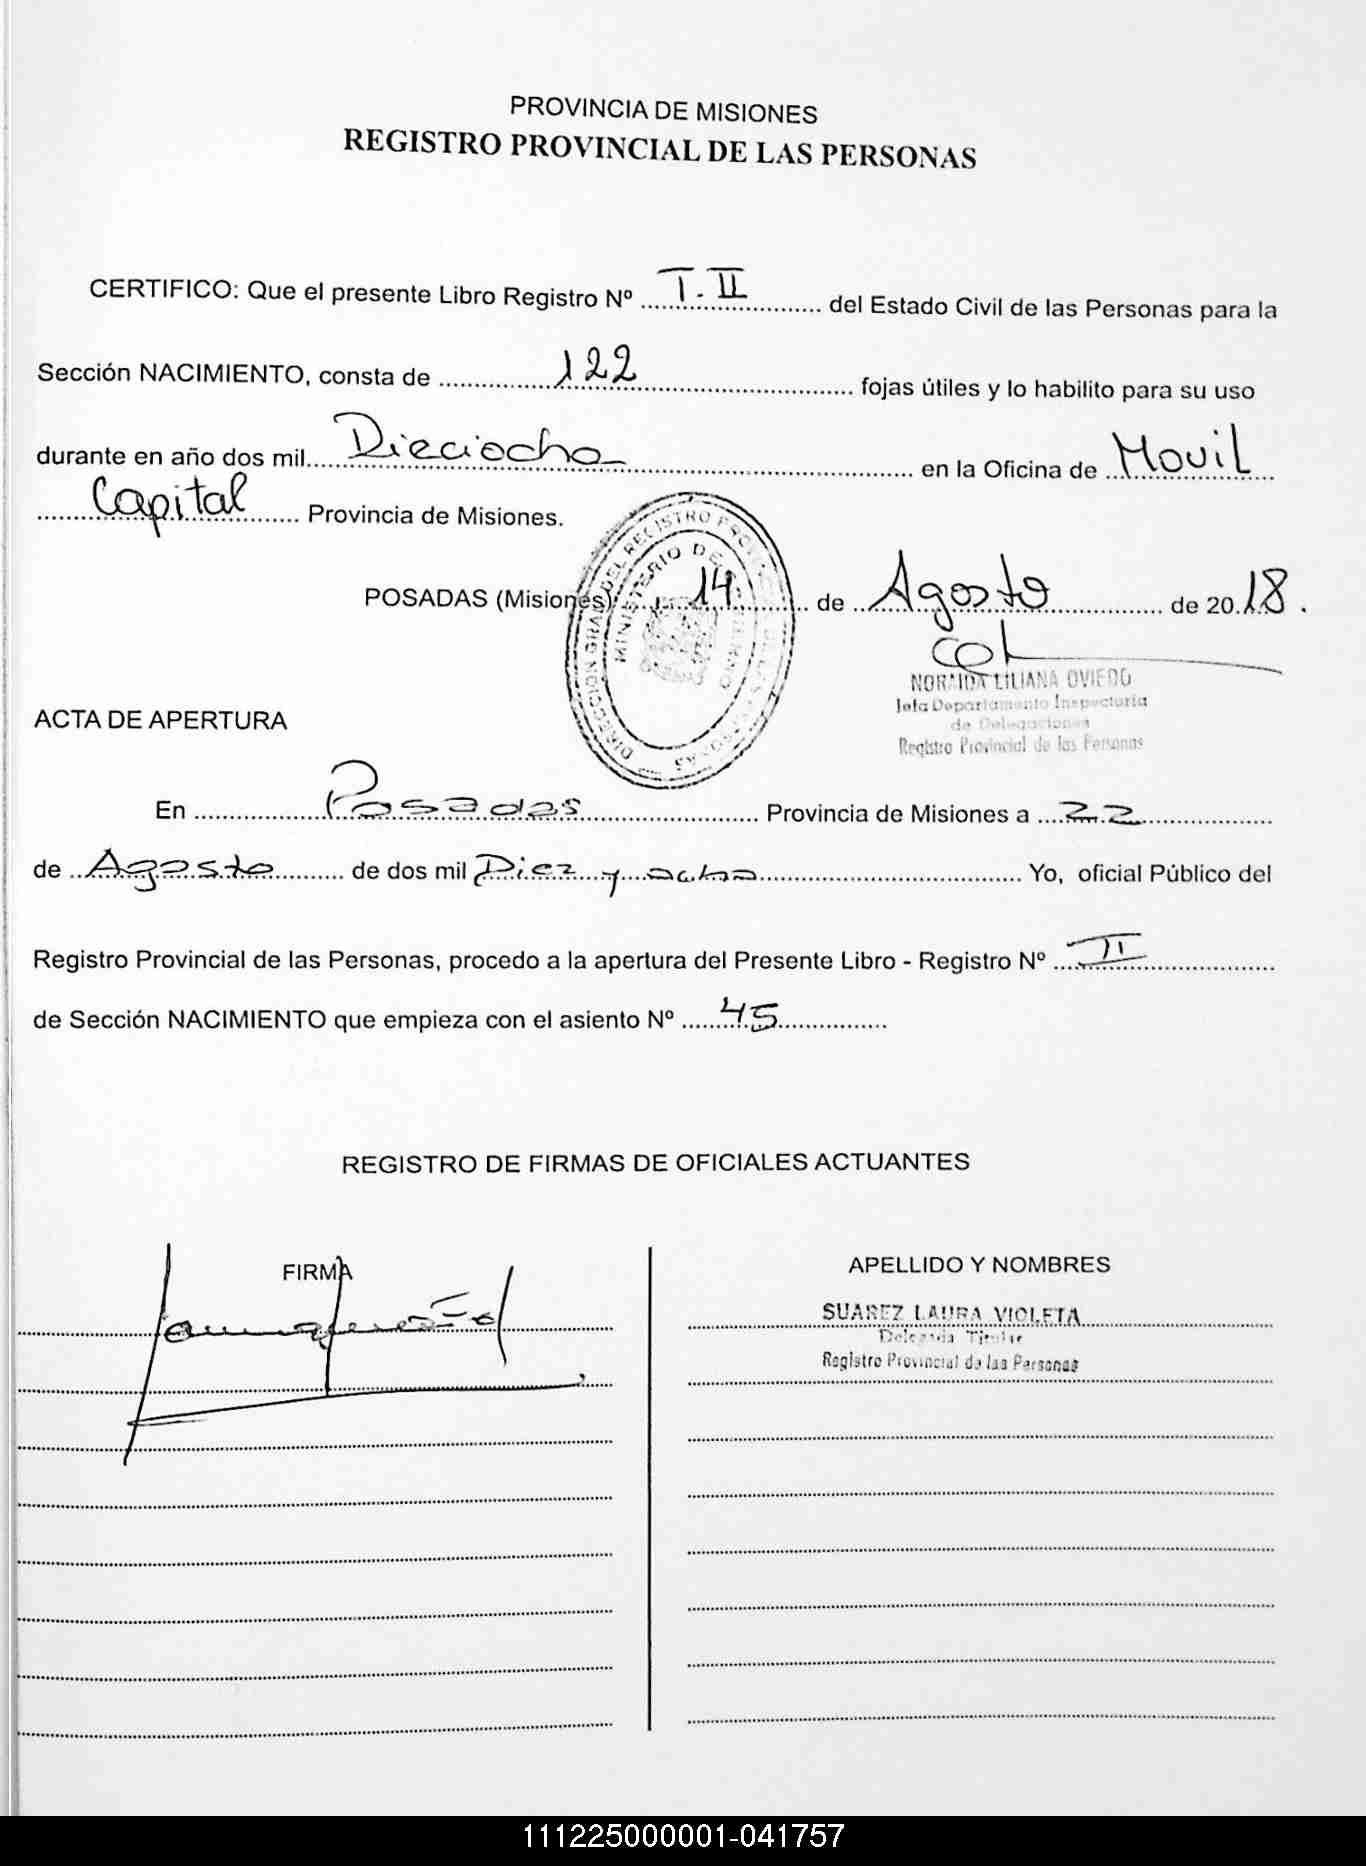 PROVINCIA DE MISIONES
REGISTRO PROVINCIAL DE LAS PERSONAS
CERTIFICO: Que el presente Libro Registro Nº T. II del Estado Civil de las Personas para la
Sección NACIMIENTO, consta de 122 fojas útiles y lo habilito para su uso
durante en año dos mil Dieciocho en la Oficina de Movil
Capital Provincia de Misiones.
POSADAS (Misiones) 14 de Agosto de 2018.
DIRECCIÓN GRAL DEL REGISTRO PROVINCIAL DE LAS PERSONAS
MINISTERIO DE GOBIERNO
NORMIDA LILIANA OVIEDO
Jefa Departamento Inspectoría
de Delegaciones
Registro Provincial de las Personas
ACTA DE APERTURA
En Posadas Provincia de Misiones a 22
de Agosto de dos mil Diez y ocho Yo, oficial Público del
Registro Provincial de las Personas, procedo a la apertura del Presente Libro - Registro Nº II
de Sección NACIMIENTO que empieza con el asiento Nº 45
REGISTRO DE FIRMAS DE OFICIALES ACTUANTES
FIRMA
APELLIDO Y NOMBRES
SUAREZ LAURA VIOLETA
Delegada Titular
Registro Provincial de las Personas
111225000001-041757